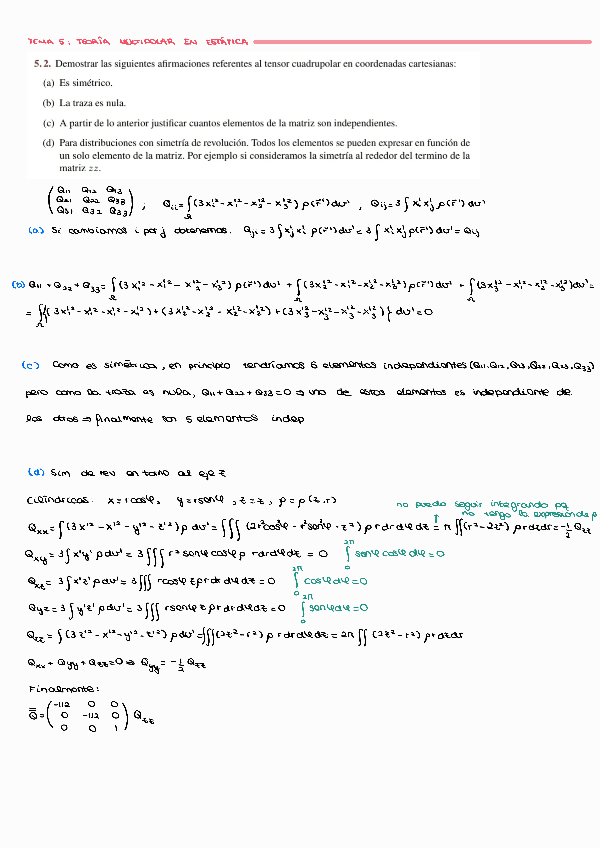 TEMA 5: TEORÍA MULTIPOLAR EN ESTÁTICA
5.2. Demostrar las siguientes afirmaciones referentes al tensor cuadrupolar en coordenadas cartesianas:
(a) Es simétrico.
(b) La traza es nula.
(c) A partir de lo anterior justificar cuantos elementos de la matriz son independientes.
(d) Para distribuciones con simetría de revolución. Todos los elementos se pueden expresar en función de
un solo elemento de la matriz. Por ejemplo si consideramos la simetría al rededor del termino de la
matriz zz.
(Q₁₁ Q₁₂ Q₁₃ / Q₂₁ Q₂₂ Q₂₃ / Q₃₁ Q₃₂ Q₃₃) ; Qᵢᵢ = ∫(3xᵢ'² - x₁'² - x₂'² - x₃'²) ρ(r⃗') dv' , Qᵢⱼ = 3∫xᵢ'xⱼ' ρ(r⃗') dv'
(a) Si cambiamos i por j obtenemos. Qⱼᵢ = 3∫xⱼ'xᵢ' ρ(r⃗') dv' = 3∫xᵢ'xⱼ' ρ(r⃗') dv' = Qᵢⱼ
(b) Q₁₁ + Q₂₂ + Q₃₃ = ∫(3x₁'² - x₁'² - x₂'² - x₃'²) ρ(r⃗') dv' + ∫(3x₂'² - x₁'² - x₂'² - x₃'²) ρ(r⃗') dv' + ∫(3x₃'² - x₁'² - x₂'² - x₃'²) dv' =
= ∫{(3x₁'² - x₁'² - x₂'² - x₃'²) + (3x₂'² - x₁'² - x₂'² - x₃'²) + (3x₃'² - x₁'² - x₂'² - x₃'²)} dv' = 0
(c) Como es simétrica, en principio tendríamos 6 elementos independientes (Q₁₁, Q₁₂, Q₁₃, Q₂₂, Q₂₃, Q₃₃)
pero como la traza es nula, Q₁₁ + Q₂₂ + Q₃₃ = 0 ⇒ uno de estos elementos es independiente de
los otros ⇒ finalmente son 5 elementos indep
(d) Sim de rev en torno al eje z
Cilíndricas. x = r cosφ, y = r senφ, z = z, ρ = ρ(z,r)
no puedo seguir integrando pq
no tengo la expresión de ρ
Qxx = ∫(3x'² - x'² - y'² - z'²) ρ dv' = ∫∫∫ (2r²cos²φ - r²sen²φ - z²) ρ r dr dφ dz = π ∫∫(r² - 2z²) ρ r dz dr = -½ Qzz
Qxy = 3∫x'y' ρ dv' = 3∫∫∫ r² senφ cosφ ρ r dr dφ dz = 0 ∫₀²π senφ cosφ dφ = 0
Qxz = 3∫x'z' ρ dv' = 3∫∫∫ r cosφ z ρ r dr dφ dz = 0 ∫₀²π cosφ dφ = 0
Qyz = 3∫y'z' ρ dv' = 3∫∫∫ r senφ z ρ r dr dφ dz = 0 ∫₀²π senφ dφ = 0
Qzz = ∫(3z'² - x'² - y'² - z'²) ρ dv' = ∫∫∫(2z² - r²) ρ r dr dφ dz = 2π ∫∫ (2z² - r²) ρ r dz dr
Qxx + Qyy + Qzz = 0 ⇒ Qyy = -½ Qzz
Finalmente:
Q̿ = (-1/2 0 0 / 0 -1/2 0 / 0 0 1) Qzz